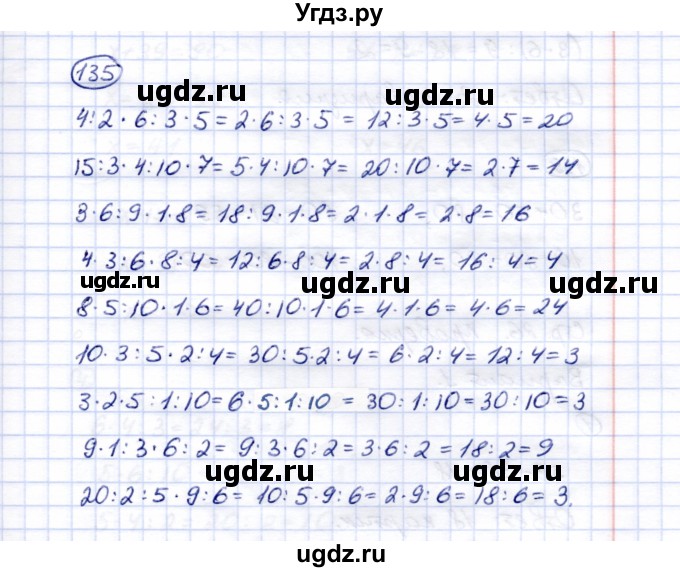 Угдз.ру
135
ugdz.ru ugdz.ru
4:2·6:3·5=2·6:3·5 = 12:3·5=4·5=20
15:3·4:10·7=5·4:10·7= 20:10·7= 2·7=14
3·6:9·1·8=18:9·1·8=2·1·8= 2·8=16
4·3:6·8:4=12:6·8:4=2·8:4= 16:4=4
ugdz.ru ugdz.ru
8·5:10·1·6=40:10·1·6= 4·1·6= 4·6=24
10·3:5·2:4= 30:5·2:4=6·2:4=12:4=3
3·2·5:1:10=6·5:1:10 = 30:1:10=30:10=3
9·1:3·6:2= 9:3·6:2=3·6:2=18:2=9
ugdz.ru ugdz.ru
20:2:5·9:6= 10:5·9:6=2·9:6=18:6=3.
ugdz.ru